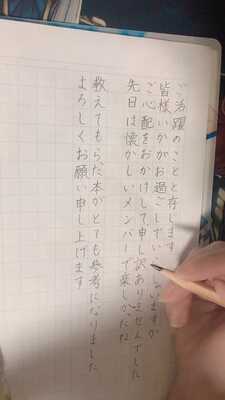 ご活躍のことと存じます
皆様いかがお過ごしでいらっしゃいますか
ご心配をおかけして申し訳ありませんでした
先日は懐かしいメンバーで楽しかったね
教えてもらった本がとても参考になりました
よろしくお願い申し上げます